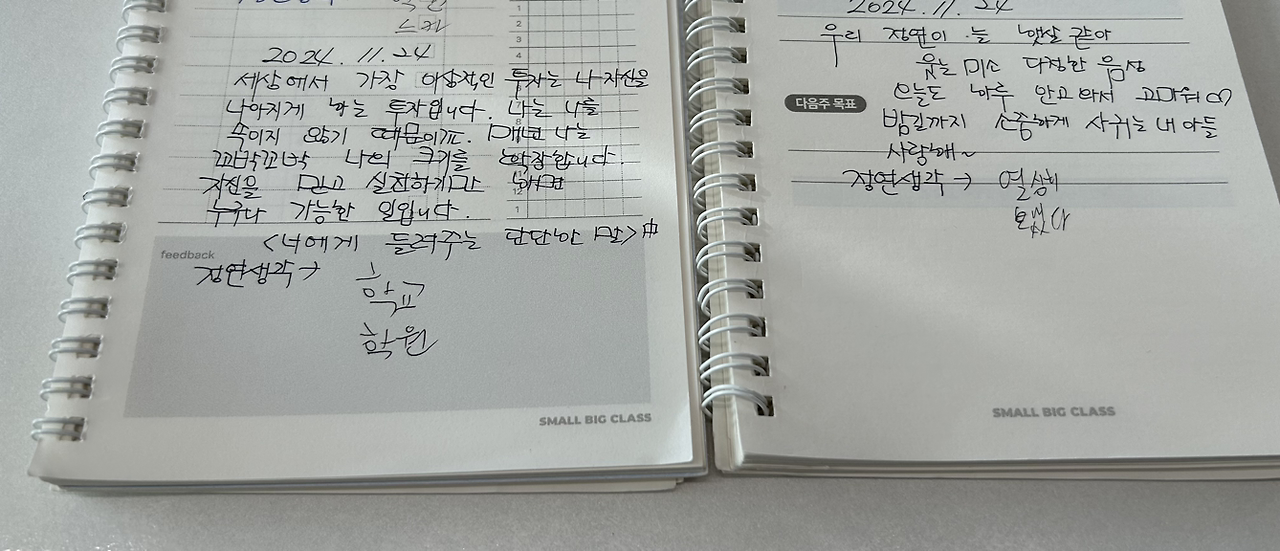 스카
2024. 11. 24
세상에서 가장 이상적인 투자는 나 자신을
나아지게 하는 투자입니다. 나는 나를
속이지 않기 때문이죠. 매번 나는
꼬박꼬박 나의 크기를 확장합니다.
자신을 믿고 실천하기만 하면
누구나 가능한 일입니다.
<너에게 들려주는 단단한 말>中
feedback
정연생각→
학교
학원
SMALL BIG CLASS
2024. 11. 24
우리 정연이 늘 햇살 같아
웃는 미소 다정한 음성
오늘도 하루 안고 와서 고마워
다음주 목표
밤길까지 소중하게 사귀는 내 아들
사랑해~
정연생각 → 열심히
모았다
SMALL BIG CLASS